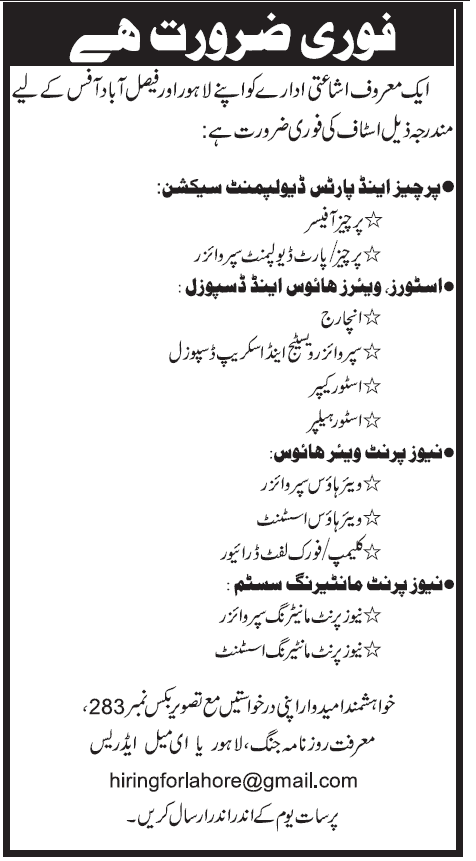 فوری ضرورت ھے
ایک معروف اشاعتی ادارے کو اپنے لاہور اور فیصل آباد آفس کے لیے
مندرجہ ذیل اسٹاف کی فوری ضرورت ہے:
●پرچیز اینڈ پارٹس ڈیولپمنٹ سیکشن:
☆پرچیز آفیسر
☆پرچیز/پارٹ ڈیولپمنٹ سپروائزر
●اسٹورز، ویئرز ھائوس اینڈ ڈسپوزل:
☆انچارج
☆سپروائزر ویسٹیج اینڈ اسکریپ ڈسپوزل
☆اسٹور کیپر
☆اسٹور ہیلپر
●نیوز پرنٹ ویئر ھائوس:
☆ویئر ہاؤس سپروائزر
☆ویئر ہاؤس اسسٹنٹ
☆کلیمپ/فورک لفٹ ڈرائیور
●نیوز پرنٹ مانٹیرنگ سسٹم:
☆نیوز پرنٹ مانیٹرنگ سپروائزر
☆نیوز پرنٹ مانٹیرنگ اسسٹنٹ
خواہشمند امیدوار اپنی درخواستیں مع تصویر بکس نمبر 283،
معرفت روزنامہ جنگ، لاہور یا ای میل ایڈریس
hiringforlahore@gmail.com
پر سات یوم کے اندر اندر ارسال کریں۔